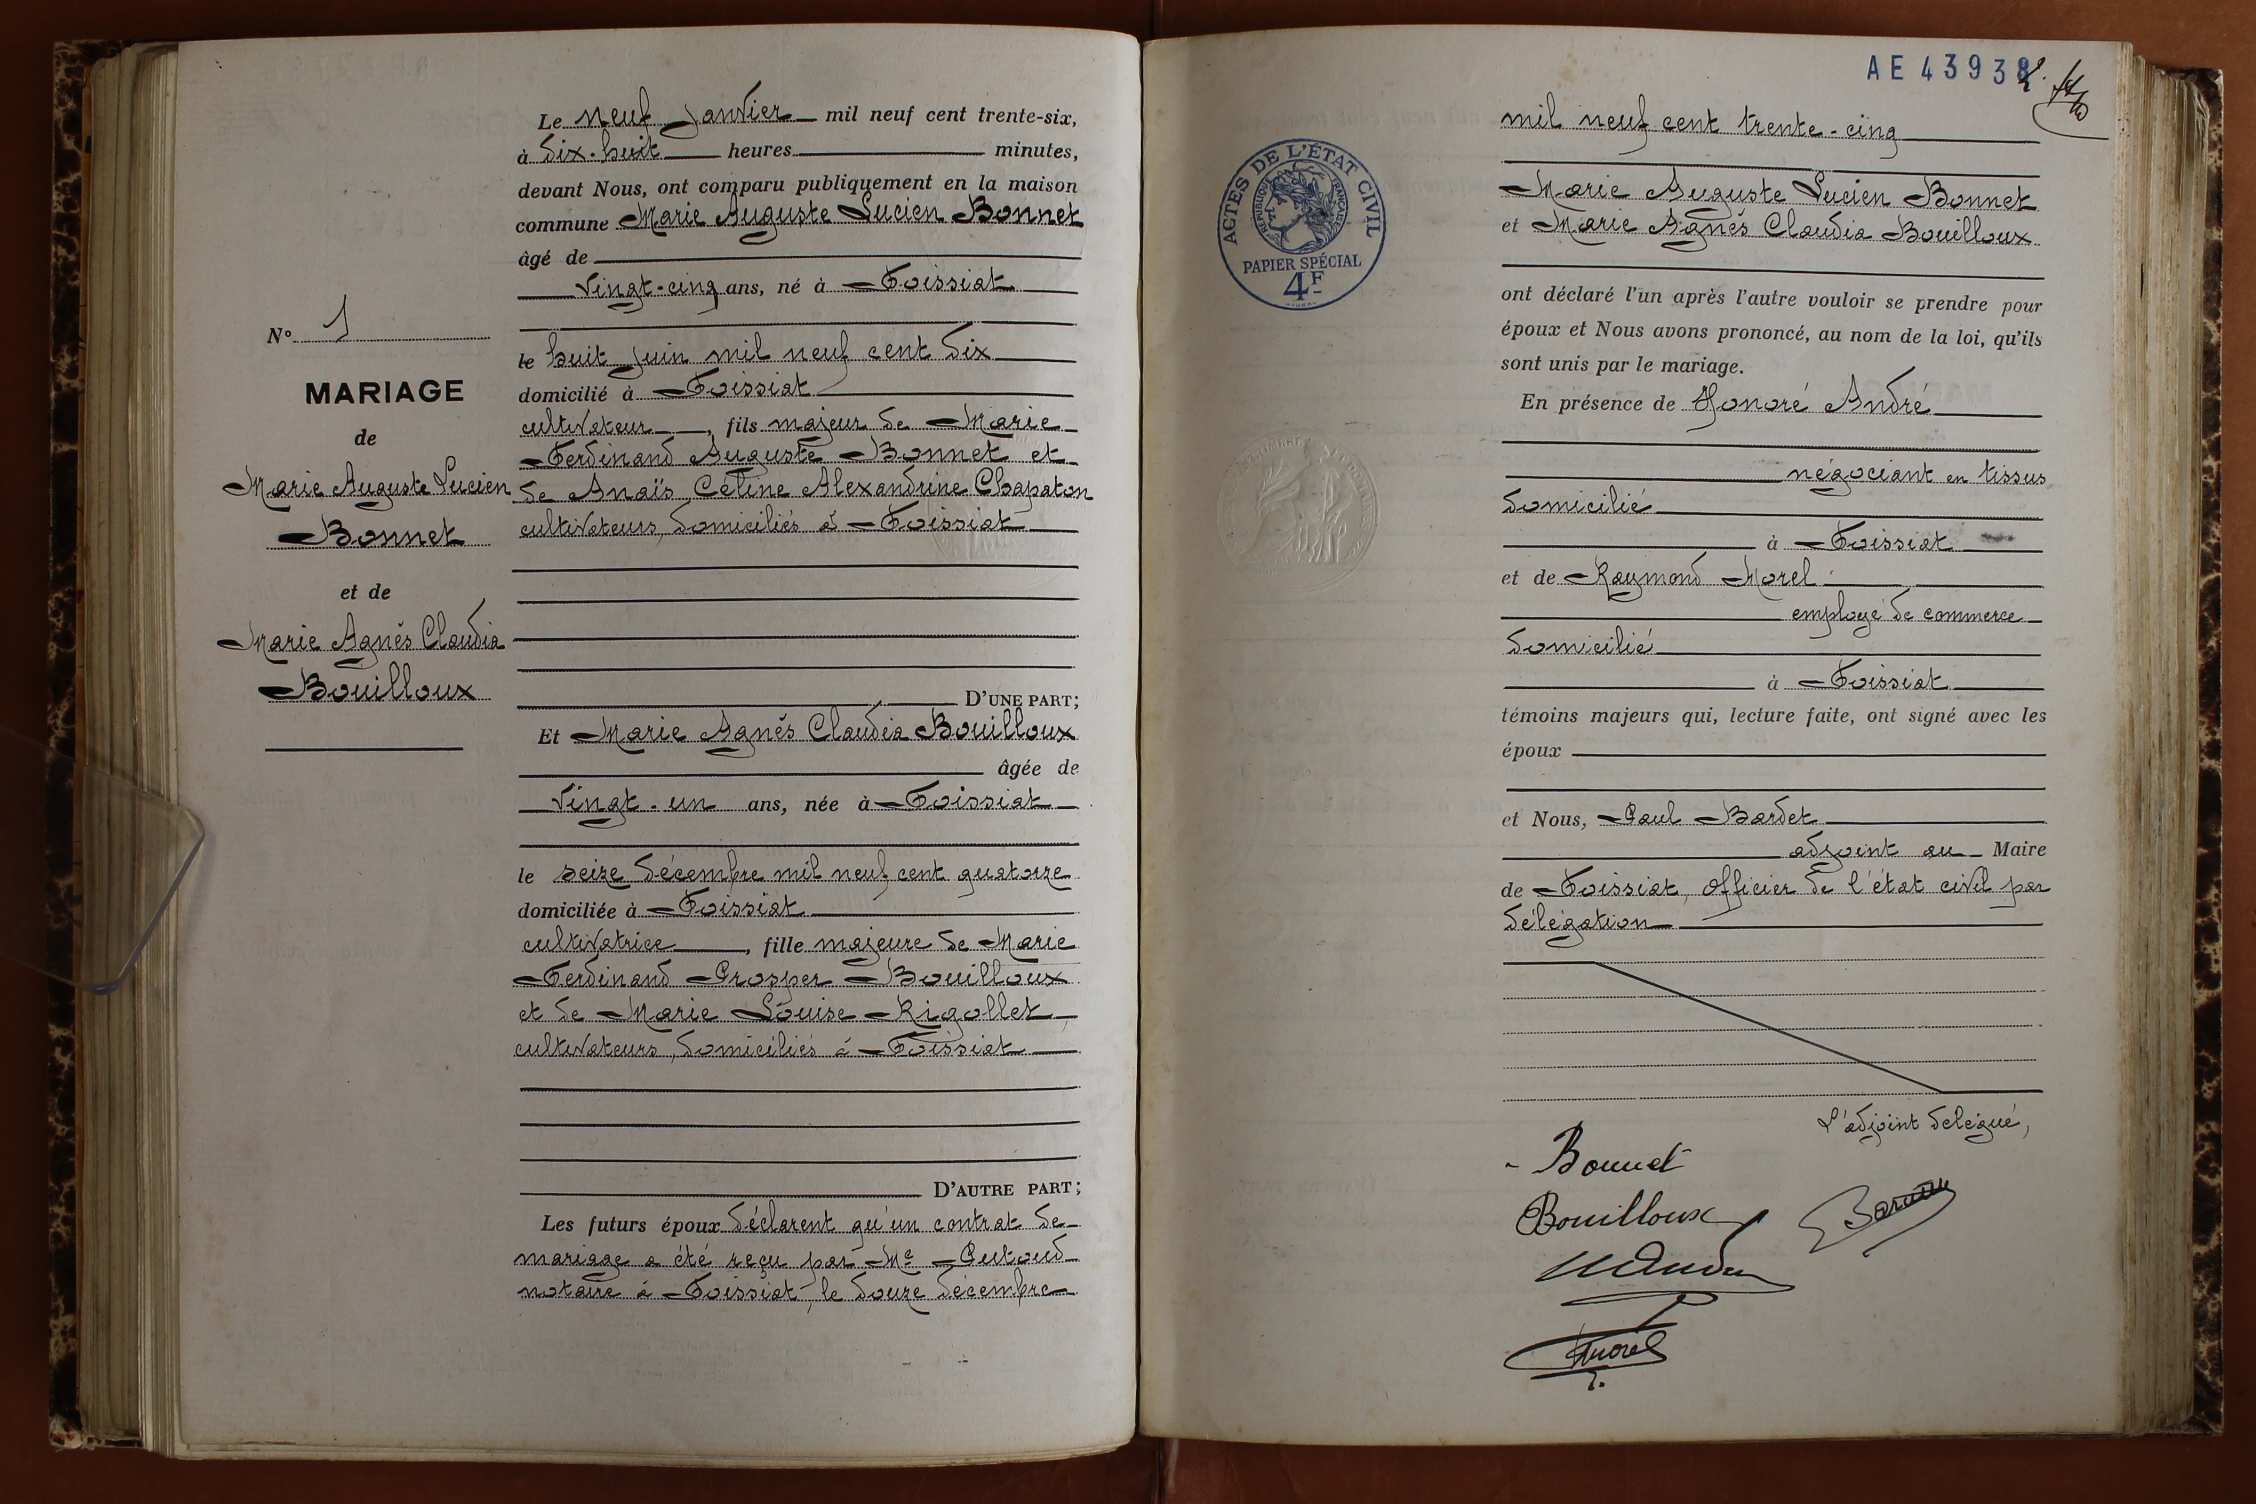 Le neuf janvier mil neuf cent trente-six,
à dix-huit heures minutes,
devant Nous, ont comparu publiquement en la maison
commune Marie Auguste Lucien Bonnet
âgé de
vingt-cinq ans, né à Foissiat
le huit juin mil neuf cent dix
domicilié à Foissiat
cultivateur, fils majeur de Marie
Ferdinand Auguste Bonnet et
de Anaïs Céline Alexandrine Chapaton
cultivateurs, domiciliés à Foissiat
D'UNE PART;
Et Marie Agnès Claudia Bouilloux
âgée de
vingt-un ans, née à Foissiat
le seize décembre mil neuf cent quatorze
domiciliée à Foissiat
cultivatrice, fille majeure de Marie
Ferdinand Prosper Bouilloux
et de Marie Louise Rigollet,
cultivateurs, domiciliés à Foissiat
D'AUTRE PART;
Les futurs époux déclarent qu'un contrat de
mariage a été reçu par Me
notaire à Foissiat, le douze décembre
No 1
MARIAGE
de
Marie Auguste Lucien
Bonnet
et de
Marie Agnès Claudia
Bouilloux
AE 43938
mil neuf cent trente-cinq
Marie Auguste Lucien Bonnet
et Marie Agnès Claudia Bouilloux
ont déclaré l'un après l'autre vouloir se prendre pour
époux et Nous avons prononcé, au nom de la loi, qu'ils
sont unis par le mariage.
En présence de Honoré André
négociant en tissus
domicilié
à Foissiat
et de Raymond Morel
employé de commerce
domicilié
à Foissiat
témoins majeurs qui, lecture faite, ont signé avec les
époux
et Nous, Paul Bardet
adjoint au Maire
de Foissiat, officier de l'état civil par
délégation
L'adjoint délégué,
Bonnet
Bouilloux
Morel
ACTES DE L'ÉTAT CIVIL
RÉPUBLIQUE FRANÇAISE
PAPIER SPÉCIAL
4F